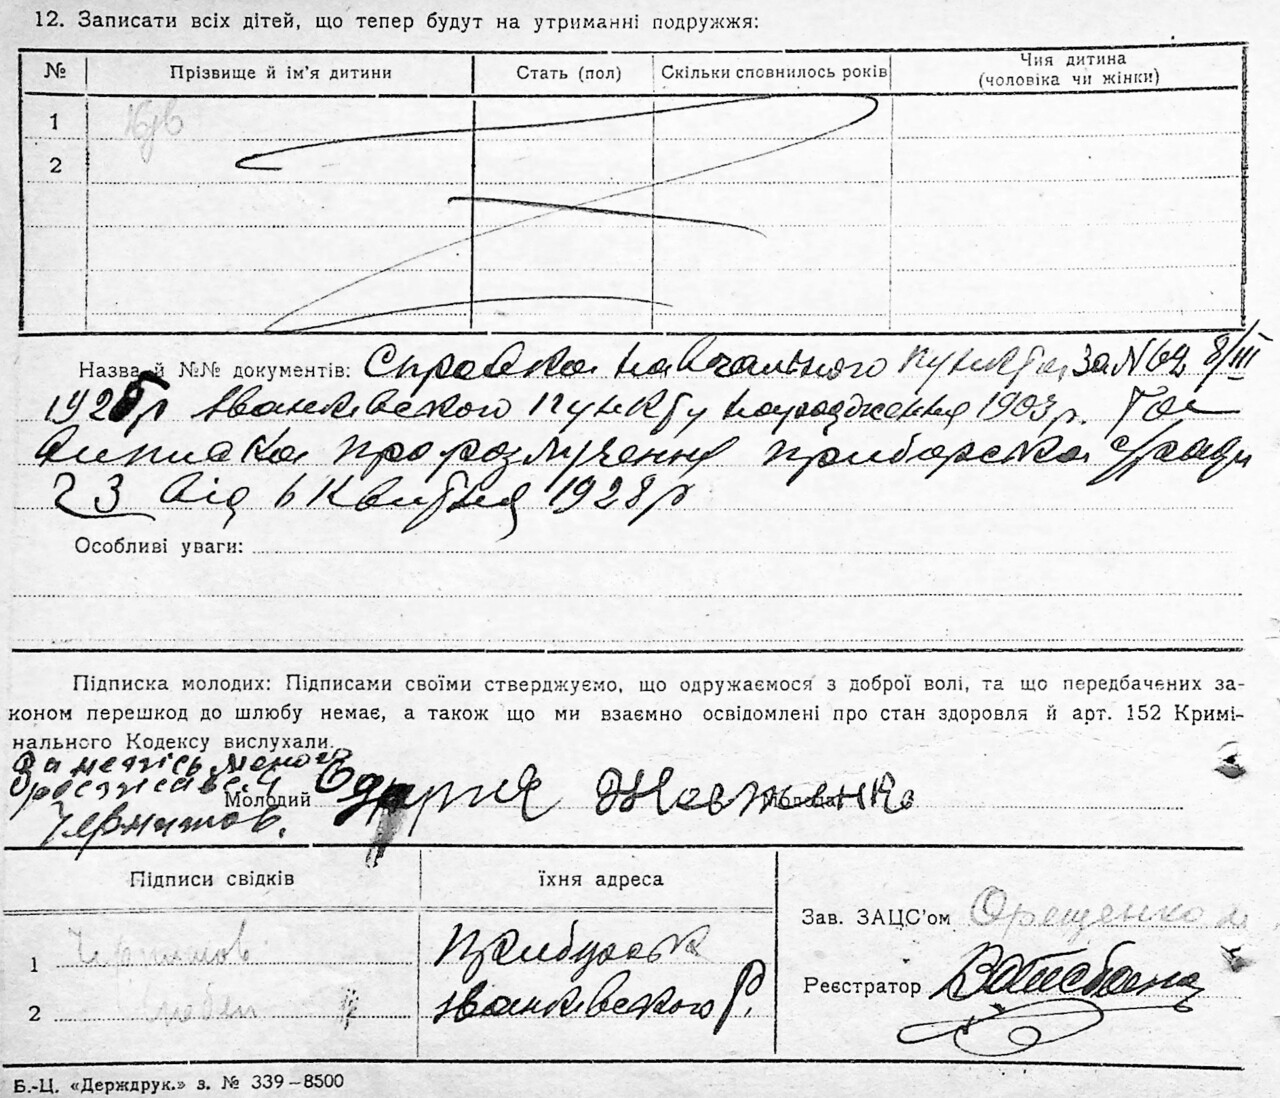 12. Записати всіх дітей, що тепер будут на утриманні подружжя:
№ Прізвище й ім'я дитини Стать (пол) Скільки сповнилось років Чия дитина (чоловіка чи жінки)
1
2
Назва й №№ документів: Справка навчального пункта за N 64 8/III
1926р Іванківського пункту народження 1903р. Та
виписка про розлучення Приборська с/ради
23 від 6 квітня 1928р
Особливі уваги:
Підписка молодих: Підписами своїми стверджуємо, що одружаємося з доброї волі, та що передбачених за-
коном перешкод до шлюбу немає, а також що ми взаємно освідомлені про стан здоровля й арт. 152 Кримі-
нального Кодексу вислухали.
Молодий Одария
Підписи свідків їхня адреса
Зав. ЗАЦС'ом Орещенко
1
Реєстратор
2 Іванківського Р.
Б.-Ц. «Держдрук.» з. № 339–8500